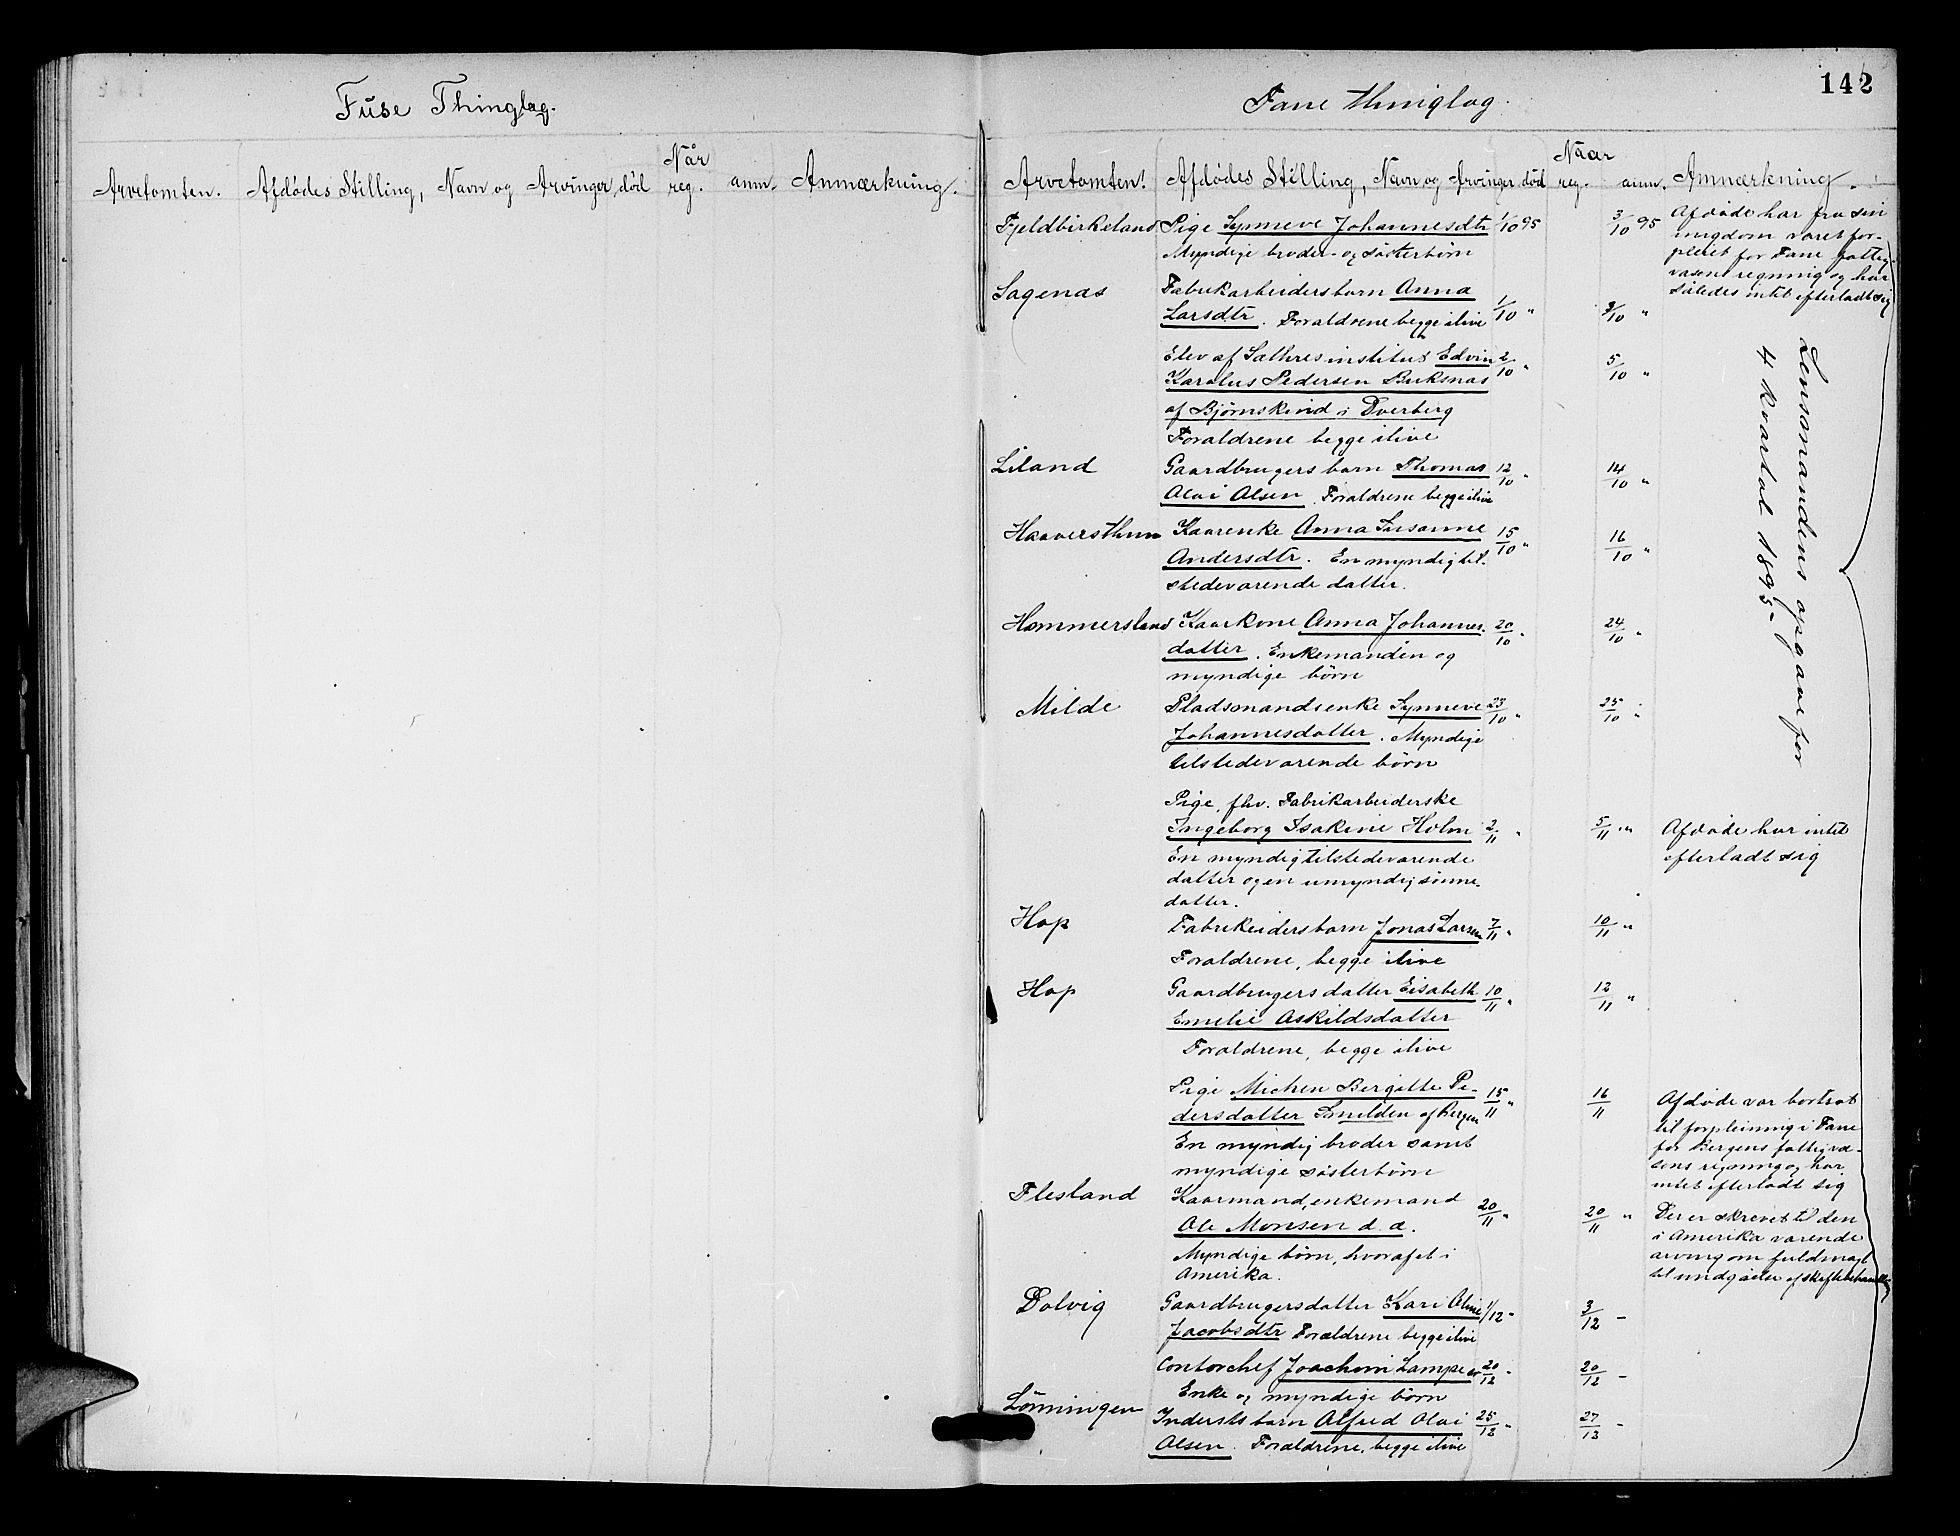 142
Fuse Thinglag.
Arvetomten. Afdødes Stilling, Navn og Arvinger, død Når reg. anm. Anmærkning.
Fane thinglag.
Arvetomten. Afdødes Stilling, Navn og Arvinger død Naar reg. anm. Anmærkning.
Fjeldbirkeland Pige Synneve Johannesdtr 1/10 95 3/10 95 Afdøde har fra sin
Myndige broder- og søsterbørn
ungdom været for-
pleiet for Fane fattig-
væsens regning og har
således intet efterladt sig
Sagenæs Fabrikarbeidersbarn Anna
Larsdtr. Forældrene begge ilive 1/10 " 3/10 "
Elev af Sælhres institut Edvin 2/10 " 5/10 "
Karolus Pedersen Buksnæs
af Bjørnskind i Dverberg
Forældrene begge ilive
Liland Gaardbrugers barn Thomas 12/10 " 14/10 "
Olai Olsen. Forældrene begge ilive
Haaversthun Kaarenke Anna Susanne 15/10 " 16/10 "
Andersdtr. En myndig til-
stedeværende datter.
Hammersland Kaarkone Anna Johannes- 20/10 " 24/10 "
datter. Enkemanden og
myndige børn
Milde Pladsmandsenke Synneve 23/10 " 25/10 "
Johannesdatter. Myndige
tilstedeværende børn
Lensmandens opgave for
4 kvartal 1895-
Pige, fhv. Fabrikarbeiderske
Ingeborg Isakine Holm 2/11 " 5/11 " Afdøde har intet
En myndig tilstedeværende efterladt sig
datter og en umyndig sønne-
datter.
Hop Fabrikeidersbarn Jonas Larsen 7/11 " 10/11 "
Forældrene, begge ilive
Hop Gaardbrugers datter Eisabeth 10/11 " 12/11 "
Emelie Askildsdatter
Forældrene, begge ilive
Pige Michen Bergitte Pe- 15/11 " 16/11 Afdøde var bortsat
dersdatter Smilden af Bergen til forpleining i Fane
En myndig broder samt for Bergens fattigvæ-
myndige søsterbørn sens regning og har
intet efterladt sig
Flesland Kaarmand, enkemand
Ole Monsen d. æ. 20/11 " 20/11 " Der er skrevet til den
Myndige børn, hvoraf et i i Amerika værende
Amerika. arving om fuldmagt
til undgåelse af skiftebehandling
Dolvig Gaardbrugersdatter Kari Oline 1/12 - 3/12 -
Jacobsdtr Forældrene begge ilive
Contorchef Joachim Lampe 20/12 - 20/12 -
Enke og myndige børn
Lønningen Inderstsbarn Alfred Olai 25/12 " 27/12 -
Olsen. Forældrene, begge ilive